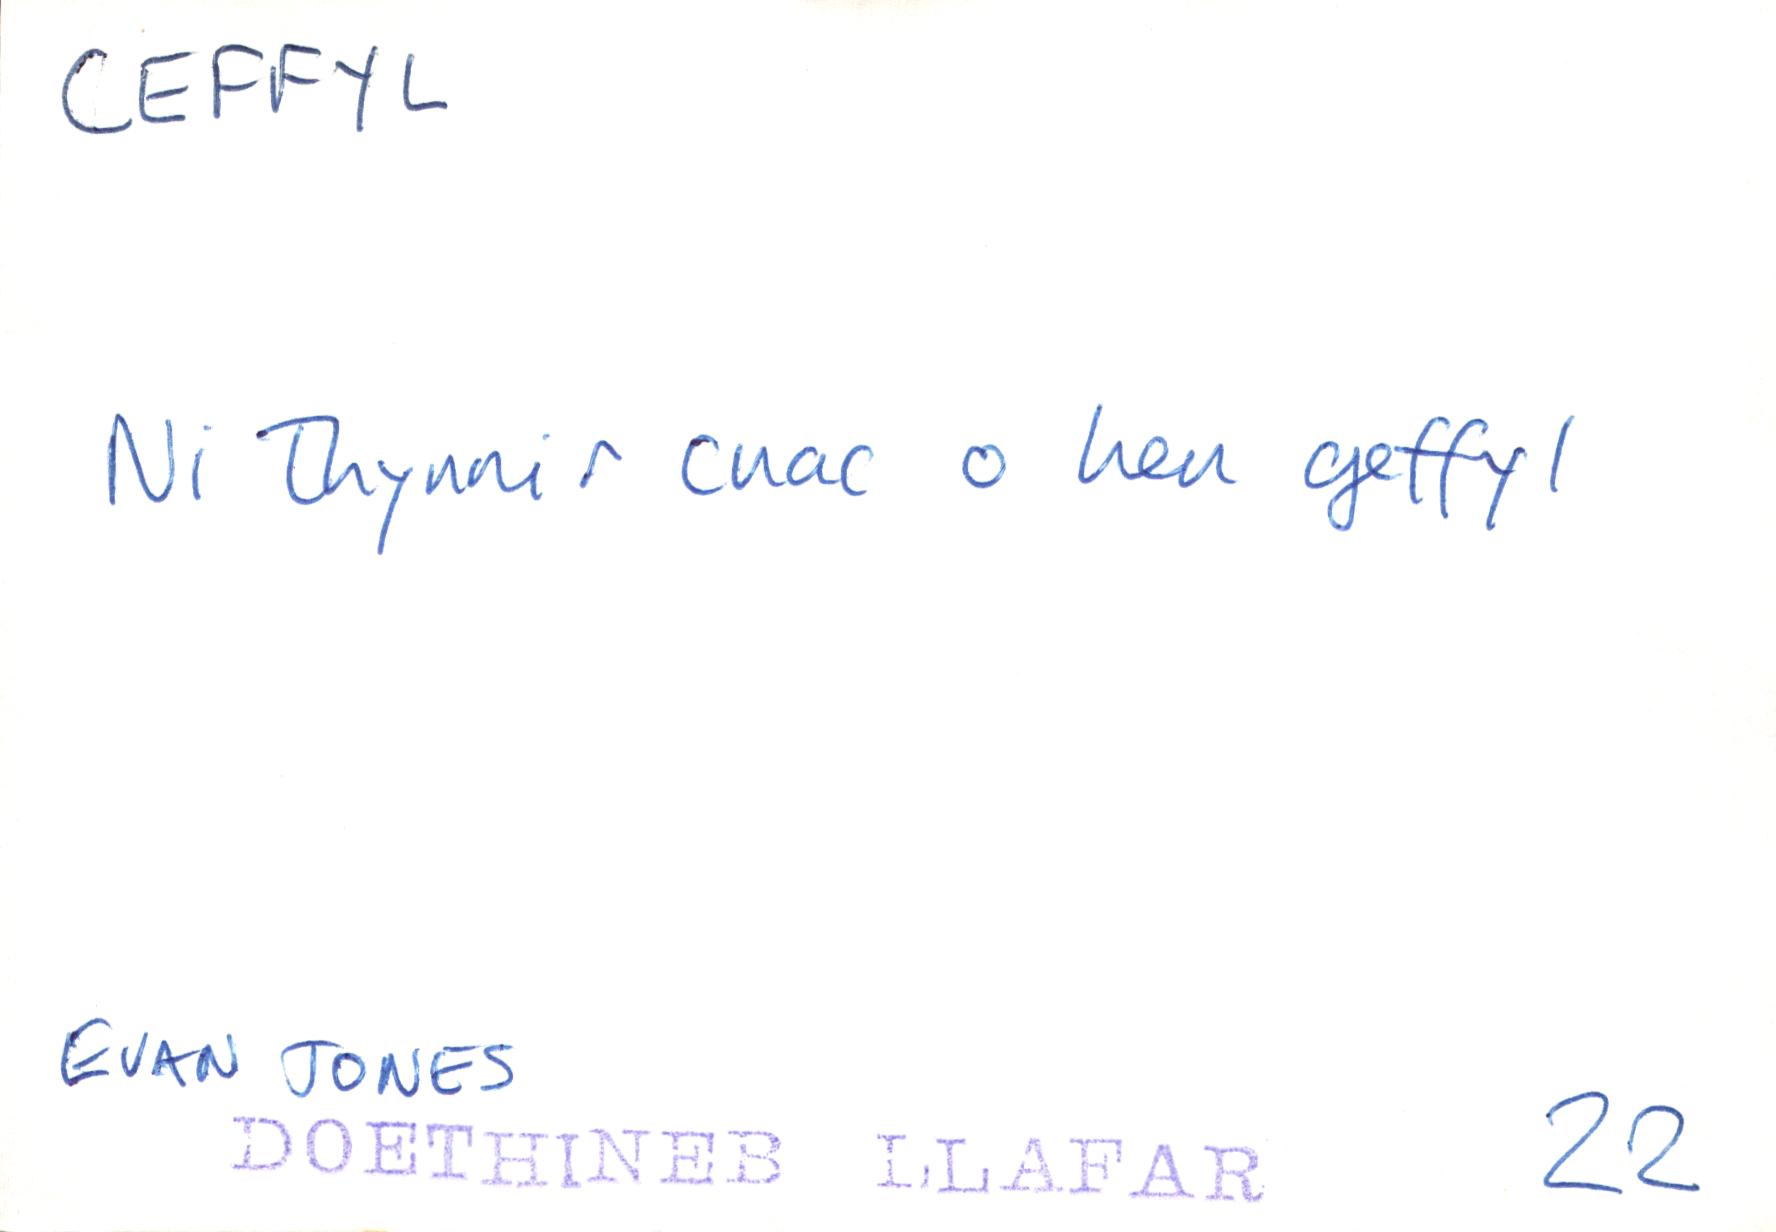 CEFFYL
Ni Thynnir cnac o hen geffyl
EVAN JONES
DOETHINEB LLAFAR
22